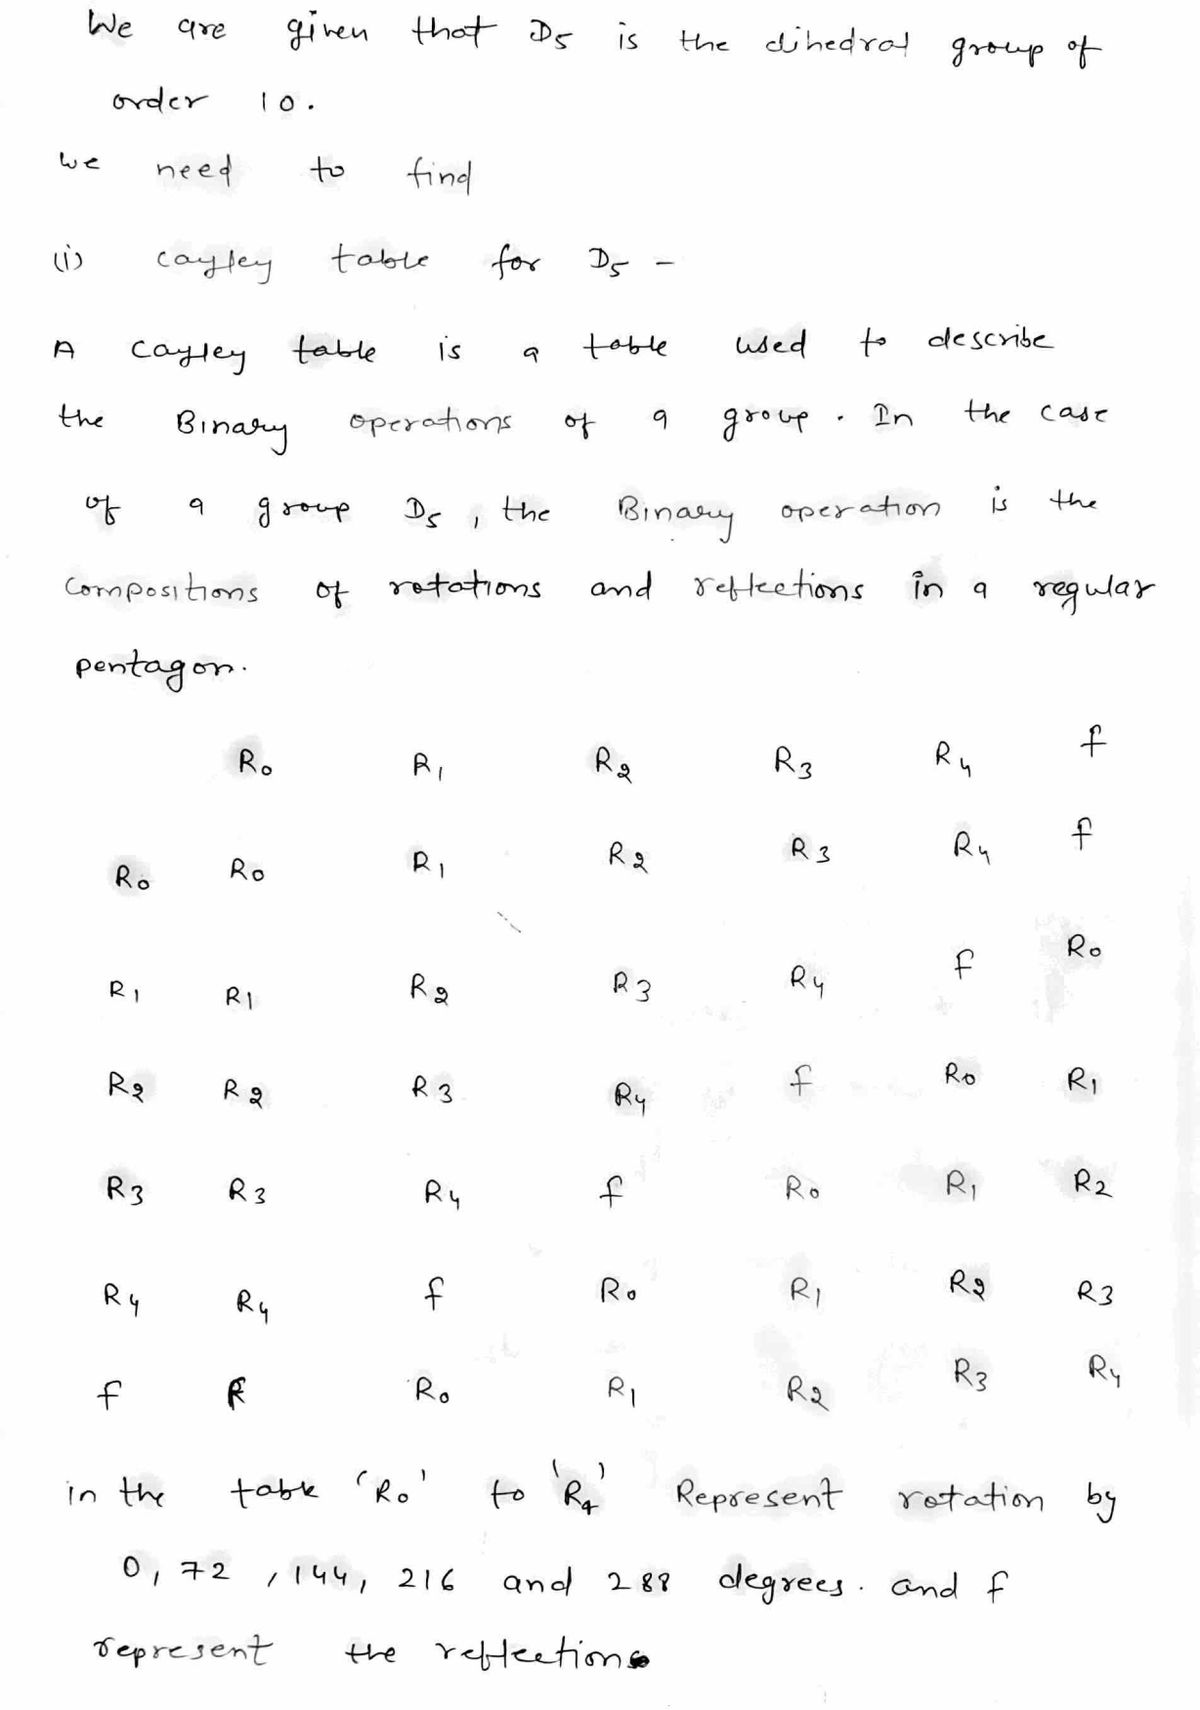 We are given that D5 is the dihedral group of
order 10.
we need to find
(i) cayley table for D5 -
A cayley table is a table used to describe
the Binary operations of a group. In the case
of a group D5, the Binary operation is the
compositions of rotations and reflections in a regular
pentagon.
R0 R1 R2 R3 R4 f
R0 R0 R1 R2 R3 R4 f
R1 R1 R2 R3 R4 f R0
R2 R2 R3 R4 f R0 R1
R3 R3 R4 f R0 R1 R2
R4 R4 f R0 R1 R2 R3
f f R0 R1 R2 R3 R4
in the table 'R0' to 'R4' Represent rotation by
0, 72, 144, 216 and 288 degrees. and f
represent the reflections